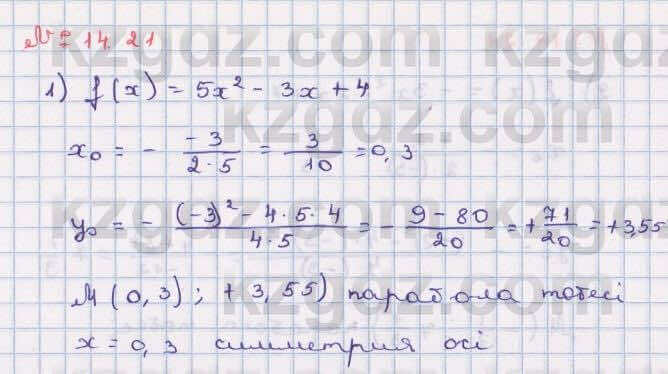 № 14.21
1) f(x) = 5x² - 3x + 4
x₀ = - \frac{-3}{2·5} = \frac{3}{10} = 0,3
y₀ = - \frac{(-3)² - 4·5·4}{4·5} = - \frac{9-80}{20} = + \frac{71}{20} = +3,55
M (0,3); +3,55) парабола төбесі
x = 0,3 симметрия осі
kzgdz.com